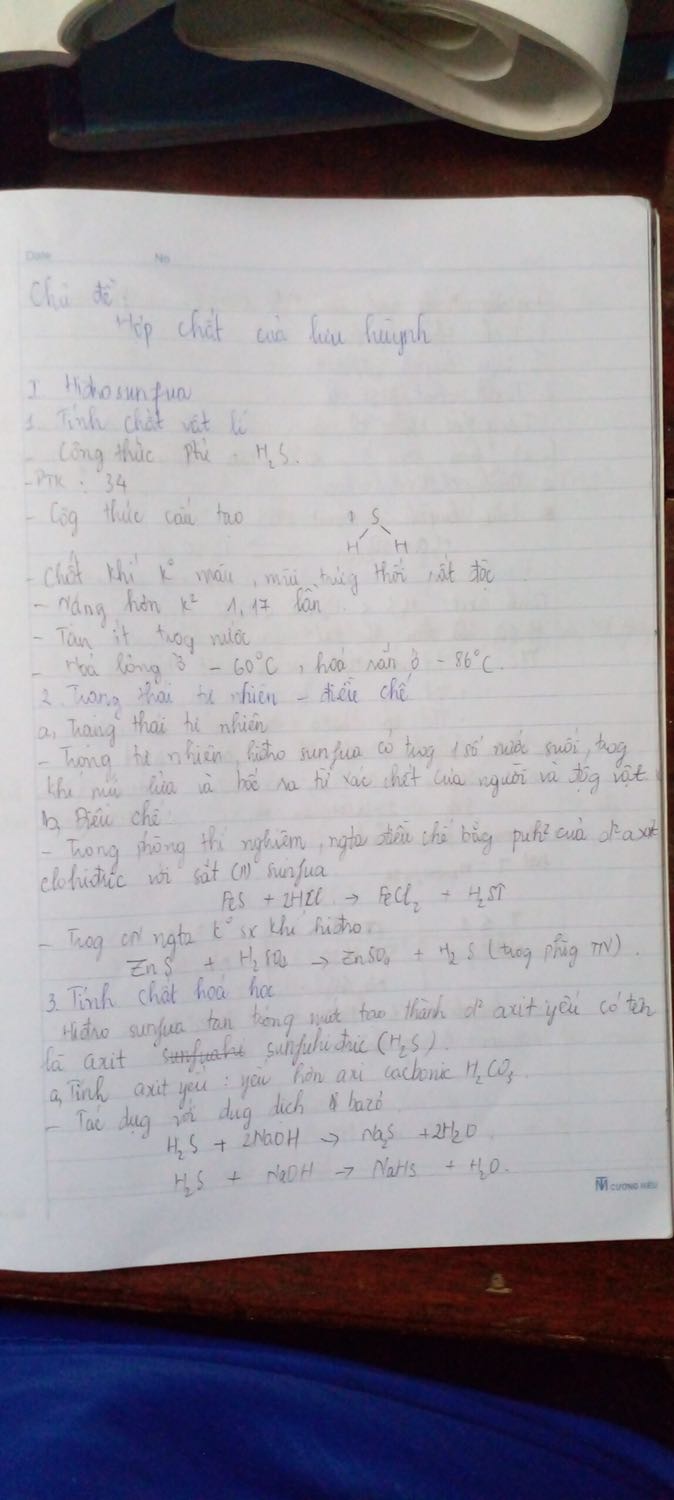 Date No
Chủ đề:
Hợp chất của lưu huỳnh
I Hidrosunfua
1. Tính chất vật lí
- Công thức phtử : H₂S.
- PTK : 34
- Côg thức cấu tạo S
H H
- Chất khí k° màu, mùi trứg thối rất độc
- Nặng hơn k² 1,17 lần
- Tan ít trog nước
- Hoá lỏng ở - 60°C, hoá rắn ở - 86°C.
2. Trạng thái tự nhiên - điều chế
a, Trạng thái tự nhiên
- Trong tự nhiên, hiđro sunfua có trog 1 số nước suối, trog
khí núi lửa và bốc ra từ xác chết của người và độg vật
b, Điều chế:
- Trong phòng thí nghiệm, ngta điều chế bằg pưh² của d² axit
clohiđric với sắt (II) sunfua
FeS + 2HCl → FeCl₂ + H₂S↑
- Trog CN ngta k° sx khí hiđro
ZnS + H₂SO₄ → ZnSO₄ + H₂S (trog phòg TN).
3. Tính chất hoá học
Hiđro sunfua tan trong nước tạo thành d² axit yếu có tên
là axit sunfuhiđric (H₂S).
a, Tính axit yếu : yếu hơn axi cacbonic H₂CO₃.
- Tác dụg với dug dịch bazơ
H₂S + 2NaOH → Na₂S + 2H₂O
H₂S + NaOH → NaHS + H₂O.
CƯỜNG HIẾU